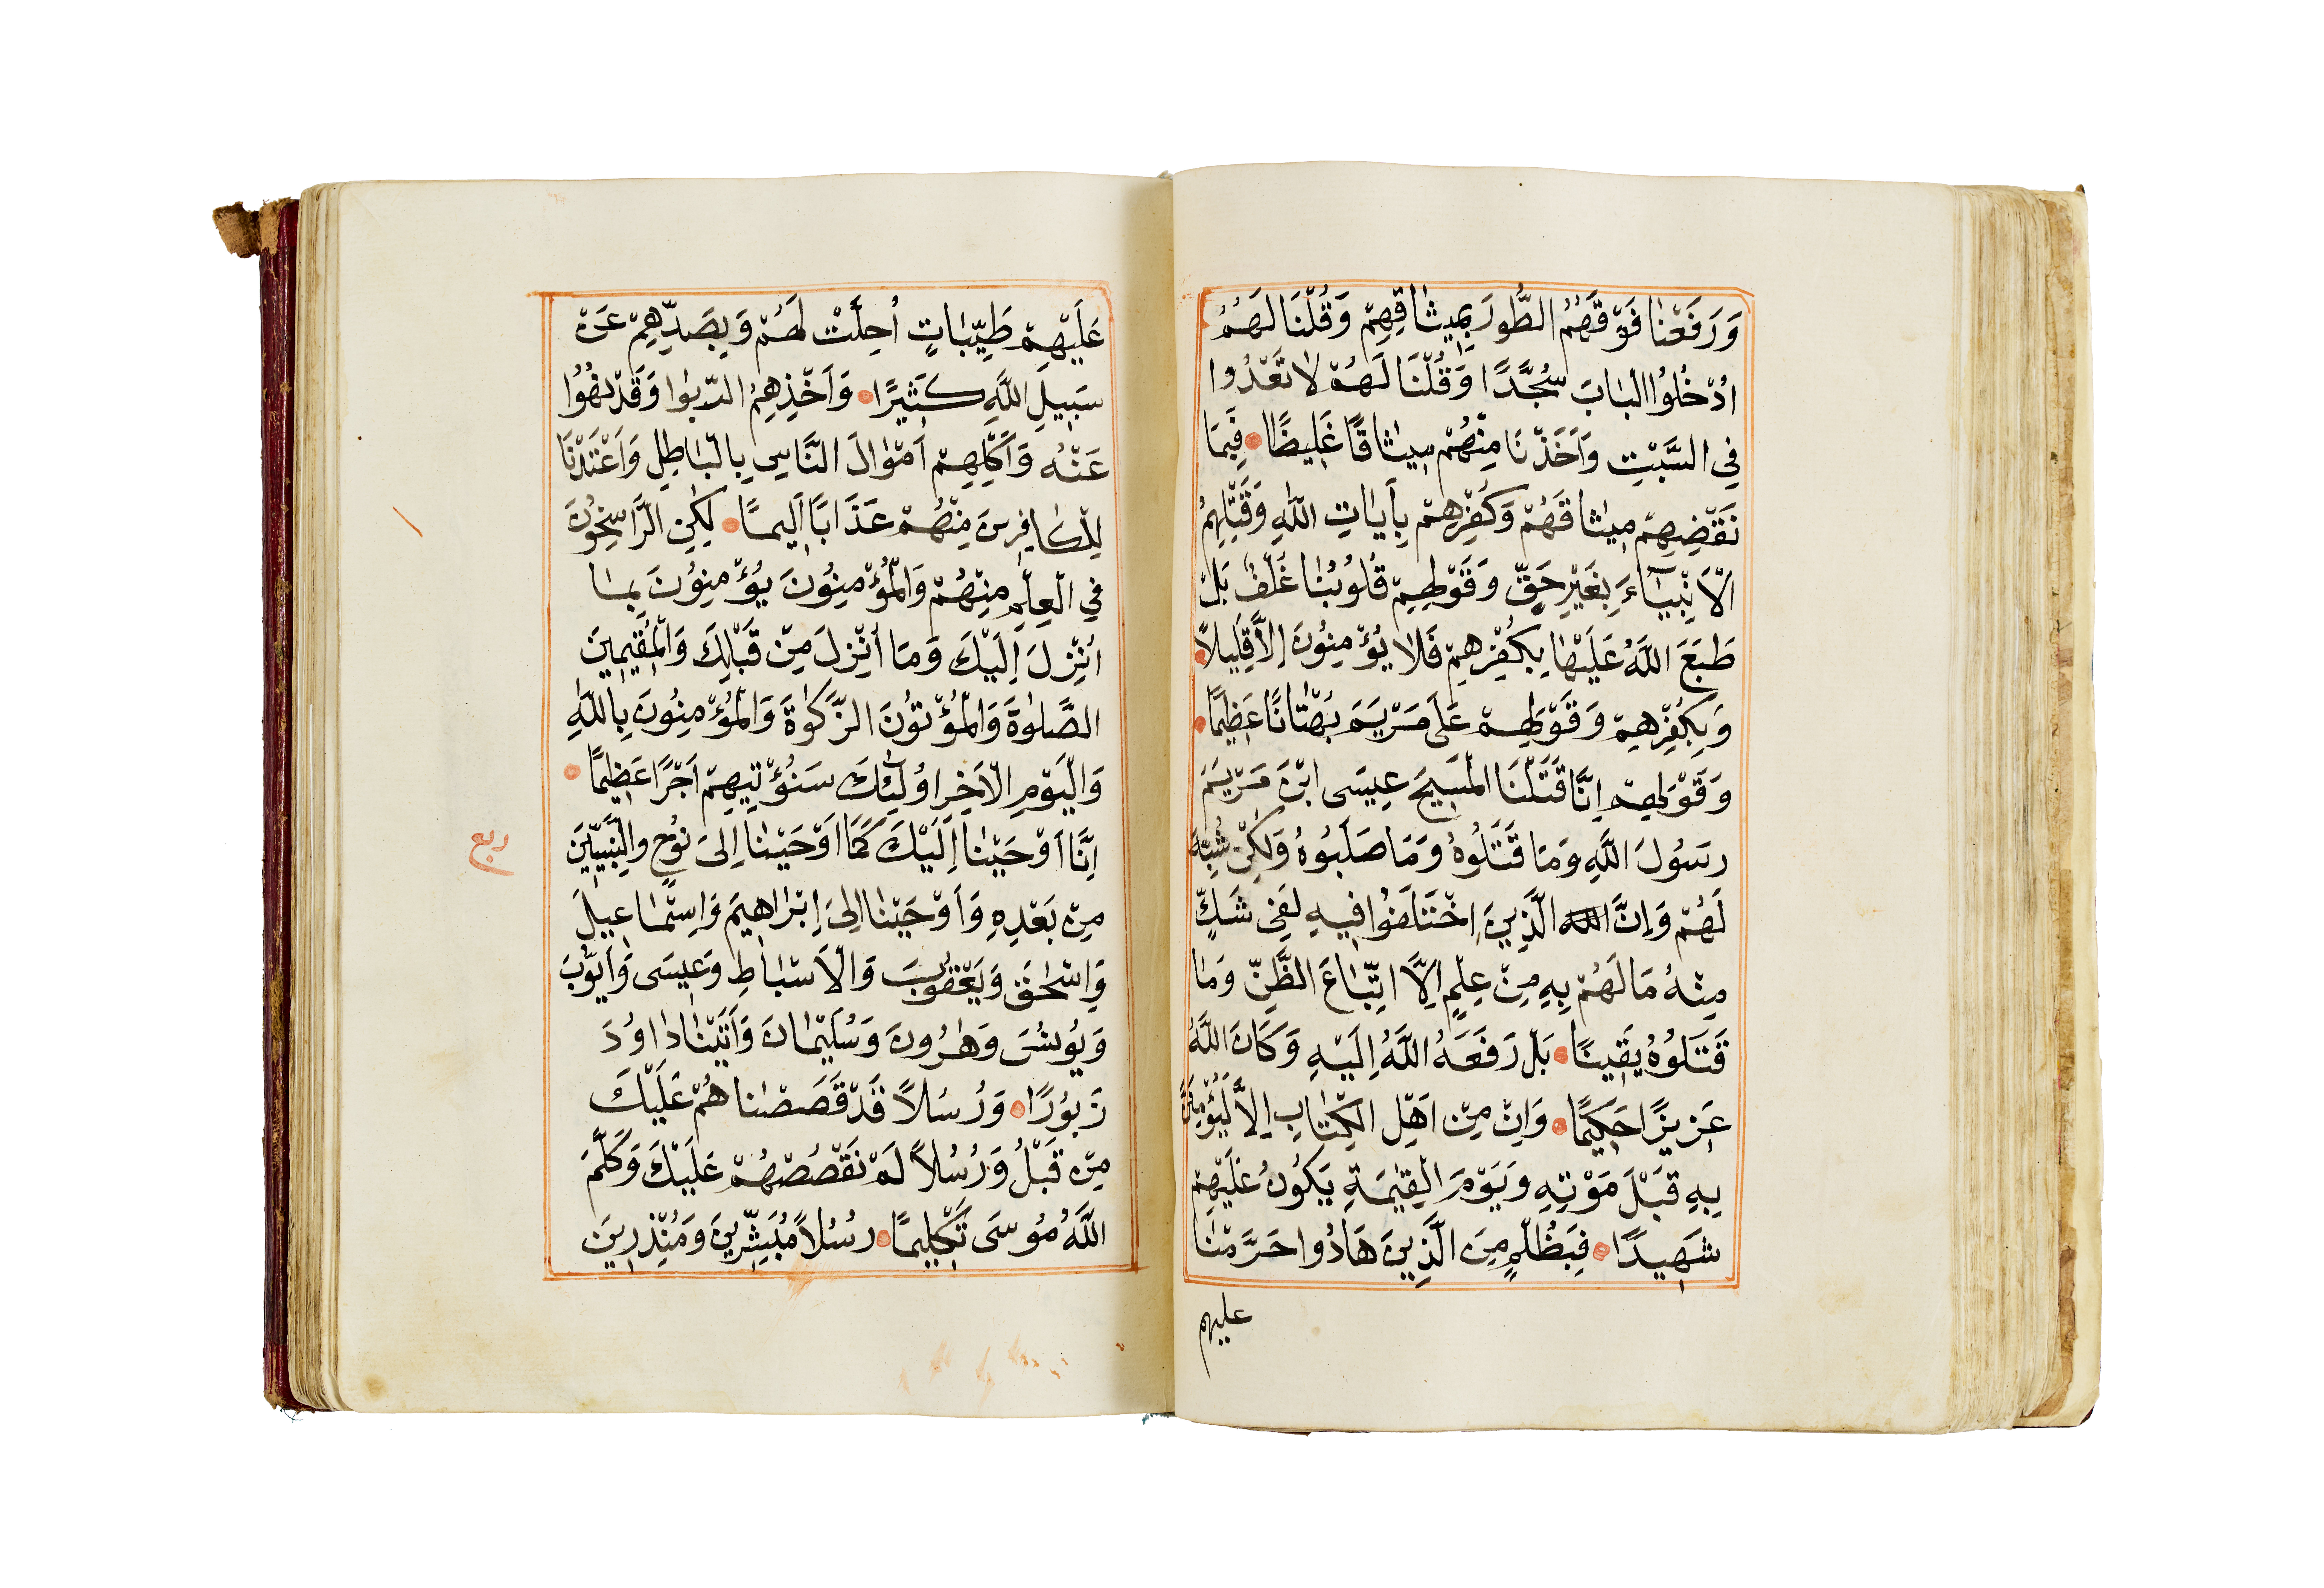 وَرَفَعْنَا فَوْقَهُمُ الطُّورَ بِمِيثَاقِهِمْ وَقُلْنَا لَهُمُ
ادْخُلُوا الْبَابَ سُجَّدًا وَقُلْنَا لَهُمْ لَا تَعْدُوا
فِي السَّبْتِ وَأَخَذْنَا مِنْهُمْ مِيثَاقًا غَلِيضًا فَبِمَا
نَقْضِهِمْ مِيثَاقَهُمْ وَكُفْرِهِمْ بِآيَاتِ اللَّهِ وَقَتْلِهِمُ
الْأَنْبِيَاءَ بِغَيْرِ حَقٍّ وَقَوْلِهِمْ قُلُوبُنَا غُلْفٌ بَلْ
طَبَعَ اللَّهُ عَلَيْهَا بِكُفْرِهِمْ فَلَا يُؤْمِنُونَ إِلَّا قَلِيلًا
وَبِكُفْرِهِمْ وَقَوْلِهِمْ عَلَى مَرْيَمَ بُهْتَانًا عَظِيمًا
وَقَوْلِهِمْ إِنَّا قَتَلْنَا الْمَسِيحَ عِيسَى ابْنَ مَرْيَمَ
رَسُولَ اللَّهِ وَمَا قَتَلُوهُ وَمَا صَلَبُوهُ وَلَكِنْ شُبِّهَ
لَهُمْ وَإِنَّ الَّذِينَ اخْتَلَفُوا فِيهِ لَفِي شَكٍّ
مِنْهُ مَا لَهُمْ بِهِ مِنْ عِلْمٍ إِلَّا اتِّبَاعَ الظَّنِّ وَمَا
قَتَلُوهُ يَقِينًا بَلْ رَفَعَهُ اللَّهُ إِلَيْهِ وَكَانَ اللَّهُ
عَزِيزًا حَكِيمًا وَإِنْ مِنْ أَهْلِ الْكِتَابِ إِلَّا لَيُؤْمِنَنَّ
بِهِ قَبْلَ مَوْتِهِ وَيَوْمَ الْقِيٰمَةِ يَكُونُ عَلَيْهِمْ
شَهِيدًا فَبِظُلْمٍ مِنَ الَّذِينَ هَادُوا حَرَّمْنَا
عليهم
عَلَيْهِمْ طَيِّبَاتٍ أُحِلَّتْ لَهُمْ وَبِصَدِّهِمْ عَنْ
سَبِيلِ اللَّهِ كَثِيرًا وَأَخْذِهِمُ الرِّبٰوا وَقَدْ نُهُوا
عَنْهُ وَأَكْلِهِمْ أَمْوَالَ النَّاسِ بِالْبَاطِلِ وَأَعْتَدْنَا
لِلْكَافِرِينَ مِنْهُمْ عَذَابًا أَلِيمًا لَكِنِ الرَّاسِخُونَ
فِي الْعِلْمِ مِنْهُمْ وَالْمُؤْمِنُونَ يُؤْمِنُونَ بِمَا
أُنْزِلَ إِلَيْكَ وَمَا أُنْزِلَ مِنْ قَبْلِكَ وَالْمُقِيمِينَ
الصَّلٰوةَ وَالْمُؤْتُونَ الزَّكٰوةَ وَالْمُؤْمِنُونَ بِاللَّهِ
وَالْيَوْمِ الْآخِرِ أُولَئِكَ سَنُؤْتِيهِمْ أَجْرًا عَظِيمًا
إِنَّا أَوْحَيْنَا إِلَيْكَ كَمَا أَوْحَيْنَا إِلَى نُوحٍ وَالنَّبِيِّينَ
ربع
مِنْ بَعْدِهِ وَأَوْحَيْنَا إِلَى إِبْرَاهِيمَ وَإِسْمَاعِيلَ
وَإِسْحٰقَ وَيَعْقُوبَ وَالْأَسْبَاطِ وَعِيسَى وَأَيُّوبَ
وَيُونُسَ وَهٰرُونَ وَسُلَيْمَانَ وَآتَيْنَا دَاوُدَ
زَبُورًا وَرُسُلًا قَدْ قَصَصْنَاهُمْ عَلَيْكَ
مِنْ قَبْلُ وَرُسُلًا لَمْ نَقْصُصْهُمْ عَلَيْكَ وَكَلَّمَ
اللَّهُ مُوسَى تَكْلِيمًا رُسُلًا مُبَشِّرِينَ وَمُنْذِرِينَ